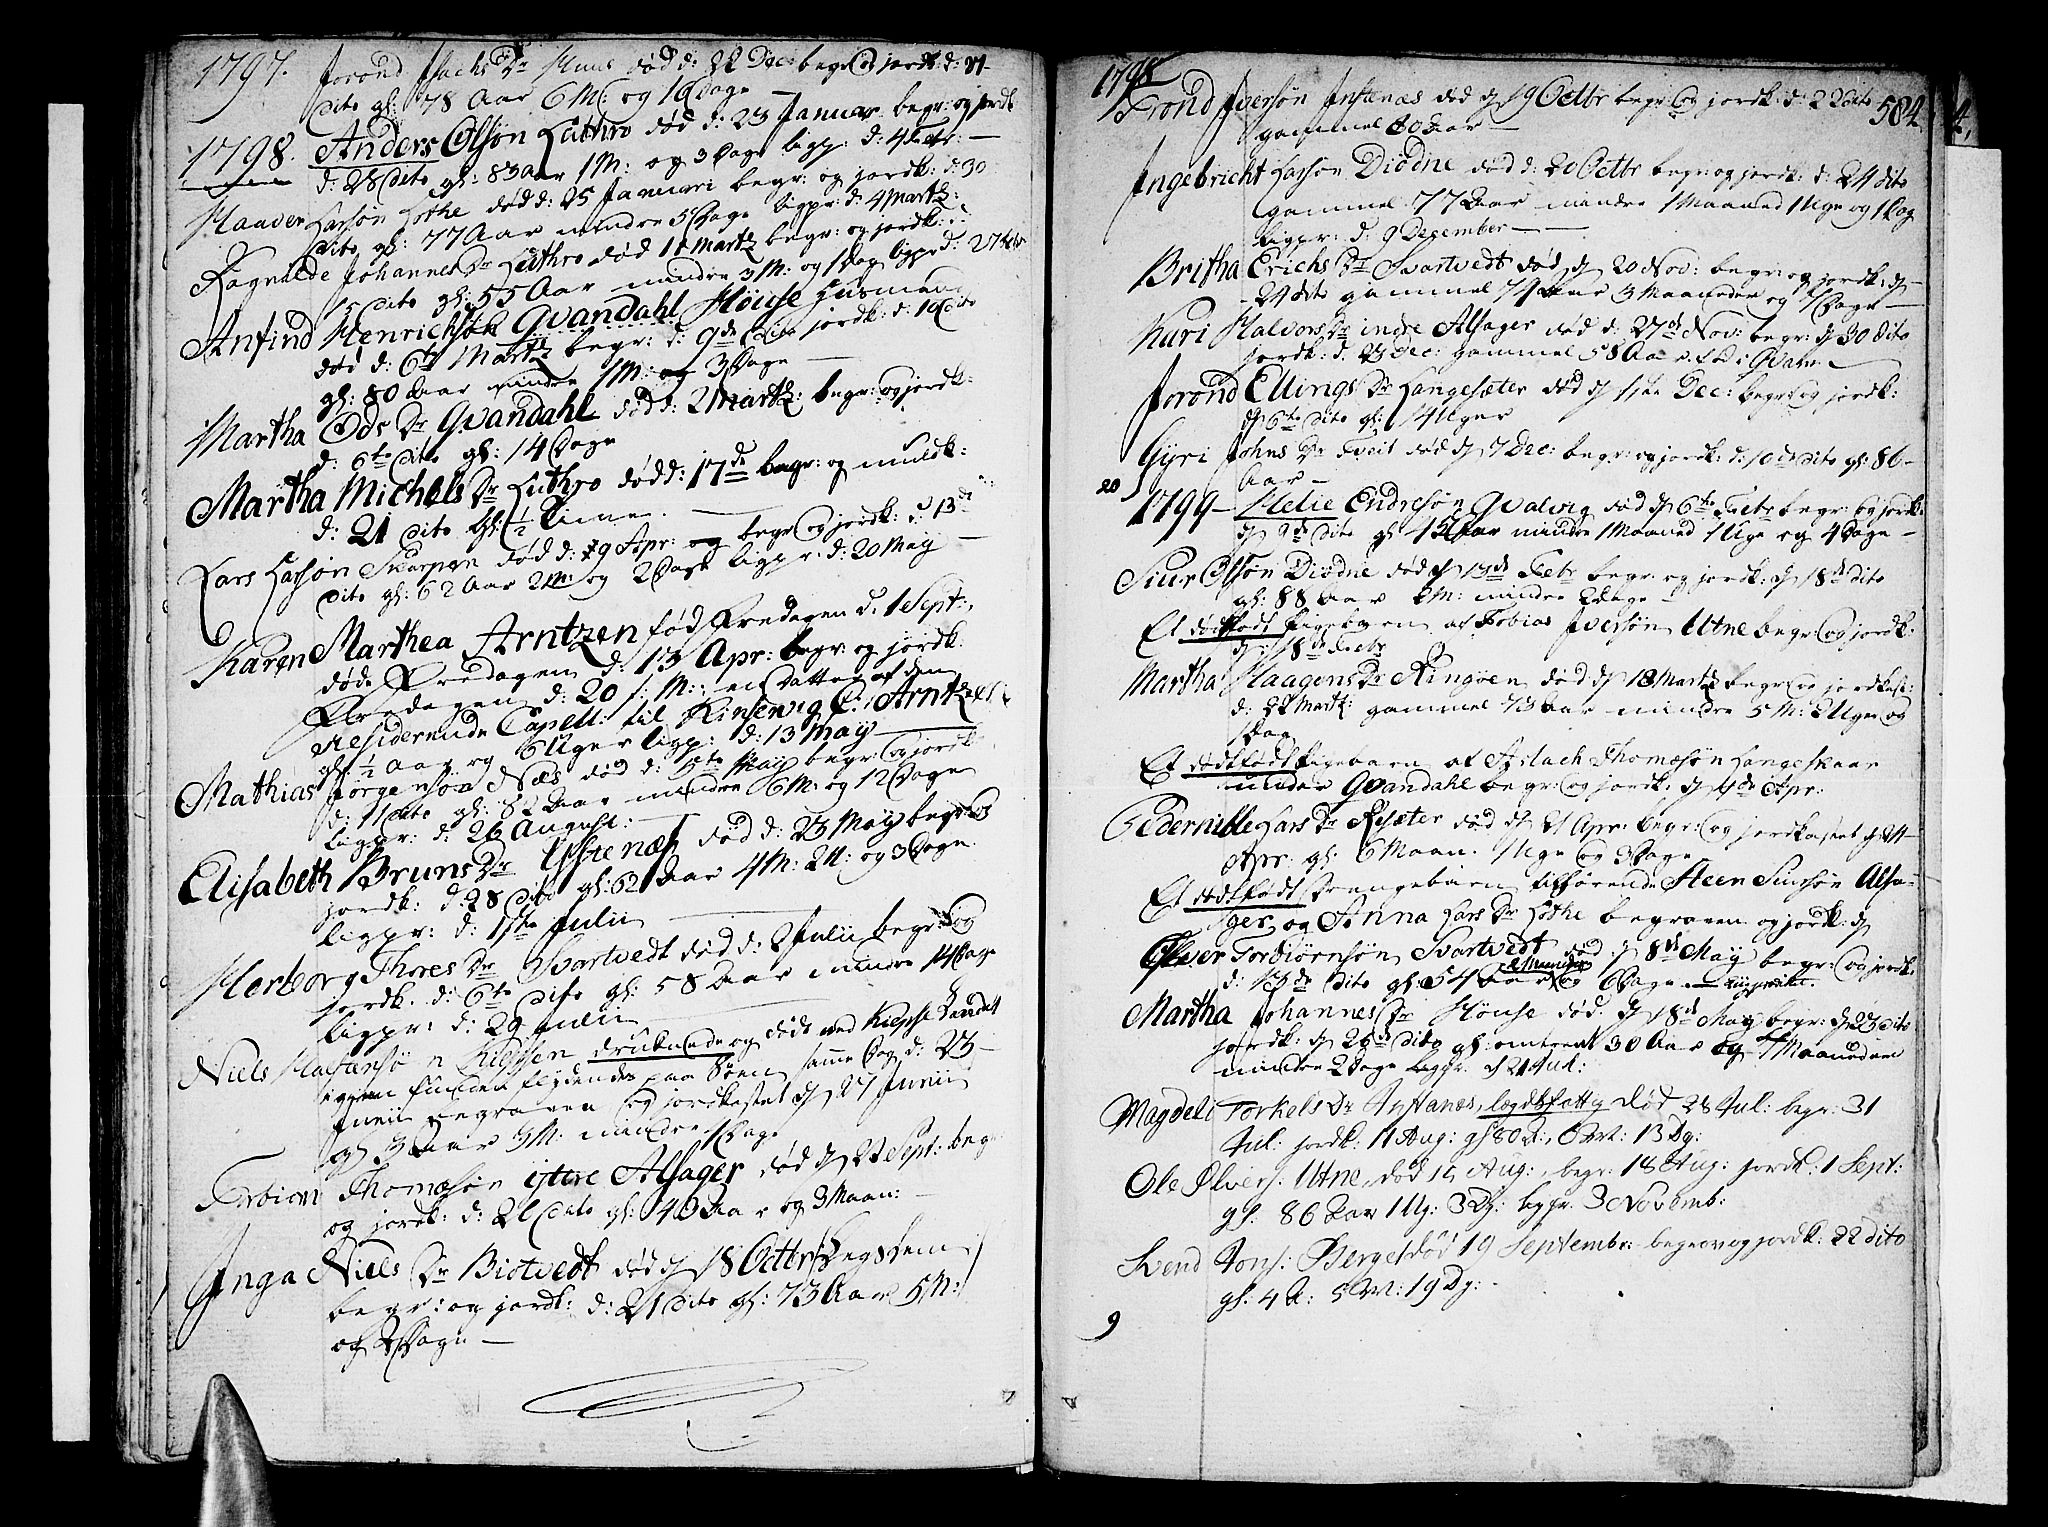 1797. Jorond Isachs Dr Huus død d: 22 Dec: begr: og jordk: d: 21
dito gl: 78 Aar 6 M: og 16 Dage
1798. Anders Olsøn Luthro død d: 23 Januar begr: og jordk
d: 28 dito gl: 83 Aar 1 M: og 3 Dage ligp: d: 4 Febr: —
Haaver Larsøn Lothe død d: 25 Januari begr: og jordk: d: 30
dito gl: 77 Aar mindre 5 Dage ligpr: d: 4 Martz:
Ragnilde Johannes Dr Luthro død 11 Martz begr: og jordk: d:
15 dito gl: 55 Aar mindre 3 M: og 1 Dag ligpr d: 27 Febr
Anfind Henrichsøn Qvandahl Høuse Husmand
død d: 6te Martz begr: d: 9de dito jordk: d: 16 dito
gl: 80 Aar mindre 1 M: og 3 Dage —
Martha Ods Dr Qvandahl død d: 2 Martz: begr: og jordk:
d: 6te dito gl: 14 Dage
Martha Michels Dr Luthro død d: 17de begr: og muldk:
d: 21 dito gl: ½ Time. —
Lars Larsøn Skarpen død d: 9 Apr: og begr: og jordk: d: 13de
dito gl: 62 Aar 2 M: og 2 Dage ligpr: d: 20 May —
Karen Marthea Arntzen fød Fredagen d. 1 Sept:,
døde Fredagen d: 13 Apr: begr: og jordk:
Fredagen d: 20 s: M:, en Datter af den
Residerende Capell: til Kinservig C: Arntzen
gl: ½ Aar og 6 Uger ligp: d: 13 May —
Mathias Jørgensøn Næs død d: 5te May begr: og jordk:
d: 11 dito gl: 82 Aar mindre 6 M: og 12 Dage
ligpr: d: 26 August: —
Elisabeth Bruns Dr Ystenæs død d: 23 May begr: og
jordk: d: 28 dito gl: 62 Aar 4 M: 2 U: og 3 Dage
ligpr: d: 1ste Julii —
Herborg Thores Dr Svartvedt død d: 2 Julii begr: og
jordk. d: 6te dito gl: 58 Aar mindre 14 Dage
ligpr: d: 29 Julii —
Niels Hartensøn Kiepsen druknede og døde ved Kiepse Landet
igien funden flydende paa Søen samme Dag d: 23 —
Junii begraven og jordkastet d 27 Junii
gl 3 Aar 3 M: mindre 1 Dage
Torbiørn Thomæsøn ytere Alsager død d 22 Sept: begr
og jordk: d: 26 dito gl: 43 Aar og 3 Maan: —
Inga Niels Dr Biotvedt død d 18 Octbr
begr: og jordk: d: 21 dito gl: 73 Aar 5 M:
og 2 Dage —
1798
584
Trond Iversøn Instenæs død d 19 Octbr begr: og jordk: d: 22 dito
gammel 80 Aar —
Ingebricht Larsøn Diødne død d: 20 Octbr begr: og jordk: d: 24 dito
gammel 77 Aar mindre 1 Maaned 1 Uge og 1 Dag
ligpr: d: 9 December — —
Britha Erichs Dr Svartvedt død d 20 Nov: begr: og jordk: d —
24 dito gammel 71 Aar 3 Maaneder og 4 Dage —
Kari Halvors Dr indre Alsager død d: 27de Nov: begr: d 30 dito
jordk: d: 23 Dec: gammel 58 Aar
Jorond Ellings Dr Langesæter død d 1ste Dec: begr: og jordk:
d 6te dito gl: 14 Uger
Gyri Johns Dr Tveit død d 7 Dec: begr: og jordk: d: 10de dito gl: 86 —
Aar —
20
1799 — Helie Endresøn Qvalvig død d 6te Febr begr: og jordk:
d 9de dito gl 45 Aar mindre 1 Maaned 1 Uge og 4 Dage —
Siur Olsøn Diødne død d 13de Febr begr: og jordk: d 18de dito
gl: 88 Aar 2 M: mindre 2 Dage —
Et dødfødt Pigebarn af Tobias Iversøn Utne begr: og jordk:
d: 18de Febr
Martha Haagens Dr Ringøen død d 18 Martz begr: og jordkast:
d: 22 Martz: gammel 73 Aar mindre 5 M: 2 Uger og
1 Dag
Et dødfødt Pigebarn af Aslach Thomæsøn Langeskaar
under Qvandahl begr: og jordk: d 4de Apr:
Pedernille Lars Dr Reisæter død d 21 Apr: begr: og jordkastet d: 24 —
Apr: gl: 6 Maan. 1 Uge og 3 Dage
Et dødfødt Drengebarn tilhørende Steen Siursøn Alsa-
ger og Anna Lars Dr Lothe begraven og jordk: d
Elver Torbiørnsøn Svartvedt død d 8de May begr: og jordk:
d: 13de dito gl: 54 Aar og 6 Dage —
Martha Johannes Dr Høuse død d 18de May begr: d 23 dito
jordk: d 26de dito gl: omtrent 30 Aar og 7 Maaneder
mindre 2 Dage ligpr. d 21 Jul:
Magdeli Torkels Dr Instanæs, lægdsfattig død 28 Jul: begr: 31
Jul: jordk: 11 Aug: gl 80 A:, 6 M: 13 Dg:
Ole Olvers: Utne, død 15 Aug:, begr: 18 Aug: jordk: 1 Sept:
gl: 86 Aar 1 Ug: 3 Dg: ligpr. 3 Novemb:
Svend Jons: Berge død 19 Septembr: begr: og jordk: 22 dito
gl: 4 A: 5 M: 19 Dg: .
9